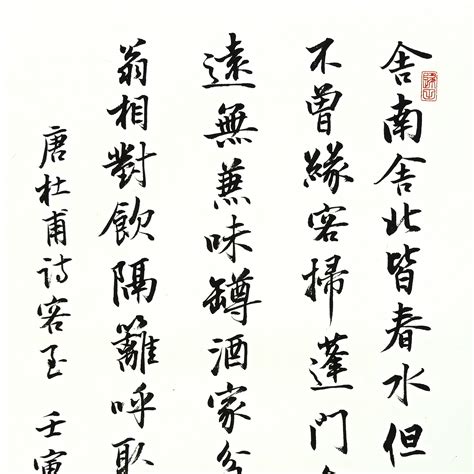 舍南舍北皆春水但
不曾緣客掃蓬門
遠無蒹味罇酒家
翁相對飲隔籬呼取
唐杜甫詩客至 壬寅